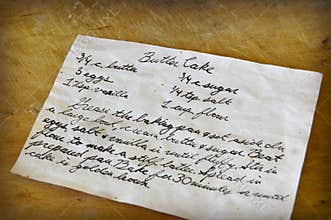 Butter Cake
3/4 c. butter 3/4 c sugar
3 eggs 1/4 tsp salt
1 tsp. vanilla 1 cup flour
Grease the baking pan & set aside. In
a large bowl, cream butter & sugar. Beat
eggs, salt & vanilla in until fluffy. Stir in
flour to make a stiff batter. Spread in
prepared pan. Bake for 30 minutes or until
cake is golden